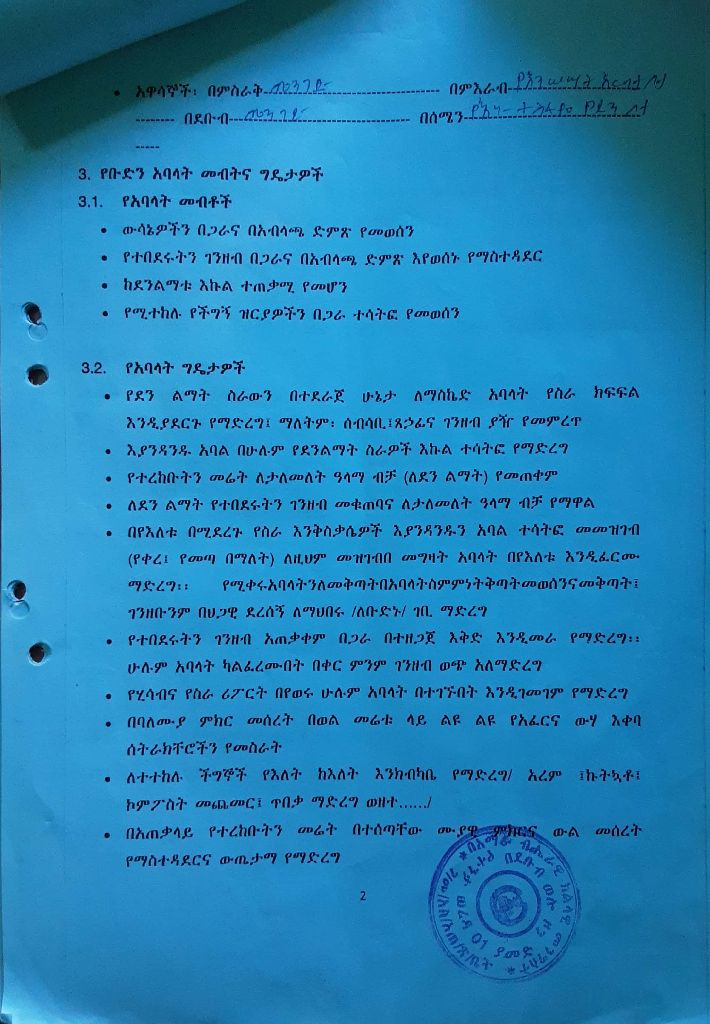 • አዋሳኞች፡ በምስራቅ መንገድ በምእራብ
በደቡብ መንገድ በሰሜን
3. የቡድን አባላት መብትና ግዴታዎች
3.1. የአባላት መብቶች
• ውሳኔዎችን በጋራና በአብላጫ ድምጽ የመወሰን
• የተበደሩትን ገንዘብ በጋራና በአብላጫ ድምጽ እየወሰኑ የማስተዳደር
• ከደንልማቱ እኩል ተጠቃሚ የመሆን
• የሚተከሉ የችግኝ ዝርያዎችን በጋራ ተሳትፎ የመወሰን
3.2. የአባላት ግዴታዎች
• የደን ልማት ስራውን በተደራጀ ሁኔታ ለማስኬድ አባላት የስራ ክፍፍል
እንዲያደርጉ የማድረግ፤ ማለትም፡ ሰብሳቢ፤ጸኃፊና ገንዘብ ያዥ የመምረጥ
• እያንዳንዱ አባል በሁሉም የደንልማት ስራዎች እኩል ተሳትፎ የማድረግ
• የተረከቡትን መሬት ለታለመለት ዓላማ ብቻ (ለደን ልማት) የመጠቀም
• ለደን ልማት የተበደሩትን ገንዘብ መቁጠባና ለታለመለት ዓላማ ብቻ የማዋል
• በየእለቱ በሚደረጉ የስራ እንቅስቃሴዎች እያንዳንዱን አባል ተሳትፎ መመዝገብ
(የቀረ፤ የመጣ በማለት) ለዚህም መዝገብበ መግዛት አባላት በየእለቱ እንዲፈርሙ
ማድረግ፡፡ የሚቀሩአባላትንለመቅጣትበአባላትስምምነትቅጣትመወሰንናመቅጣት፤
ገንዘቡንም በህጋዊ ደረሰኝ ለማህበሩ /ለቡድኑ/ ገቢ ማድረግ
• የተበደሩትን ገንዘብ አጠቃቀም በጋራ በተዘጋጀ እቅድ እንዲመራ የማድረግ፡፡
ሁሉም አባላት ካልፈረሙበት በቀር ምንም ገንዘብ ወጭ አለማድረግ
• የሂሳብና የስራ ሪፖርት በየወሩ ሁሉም አባላት በተገኙበት እንዲገመገም የማድረግ
• በባለሙያ ምክር መሰረት በወል መሬቱ ላይ ልዩ ልዩ የአፈርና ውሃ እቀባ
ሰትራክቸሮችን የመስራት
• ለተተከሉ ችግኞች የእለት ከእለት እንክብካቤ የማድረግ/ አረም ፤ኩትኳቶ፤
ኮምፖስት መጨመር፤ ጥበቃ ማድረግ ወዘተ....../
• በአጠቃላይ የተረከቡትን መሬት በተሰጣቸው ሙያዊ ምክርና ውል መሰረት
የማስተዳደርና ውጤታማ የማድረግ
2
በአማራ ብሔራዊ ክልላዊ መንግስት
በደቡብ ወሎ ዞን
01